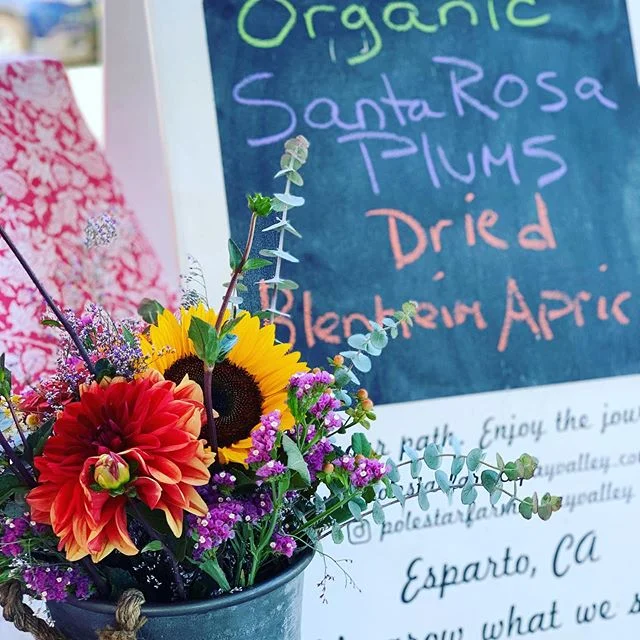 Organic
Santa Rosa
Plums
Dried
Blenheim Apric
r path. Enjoy the jou
polestarfarm
ayvalley
Esparto, CA
grow what we s